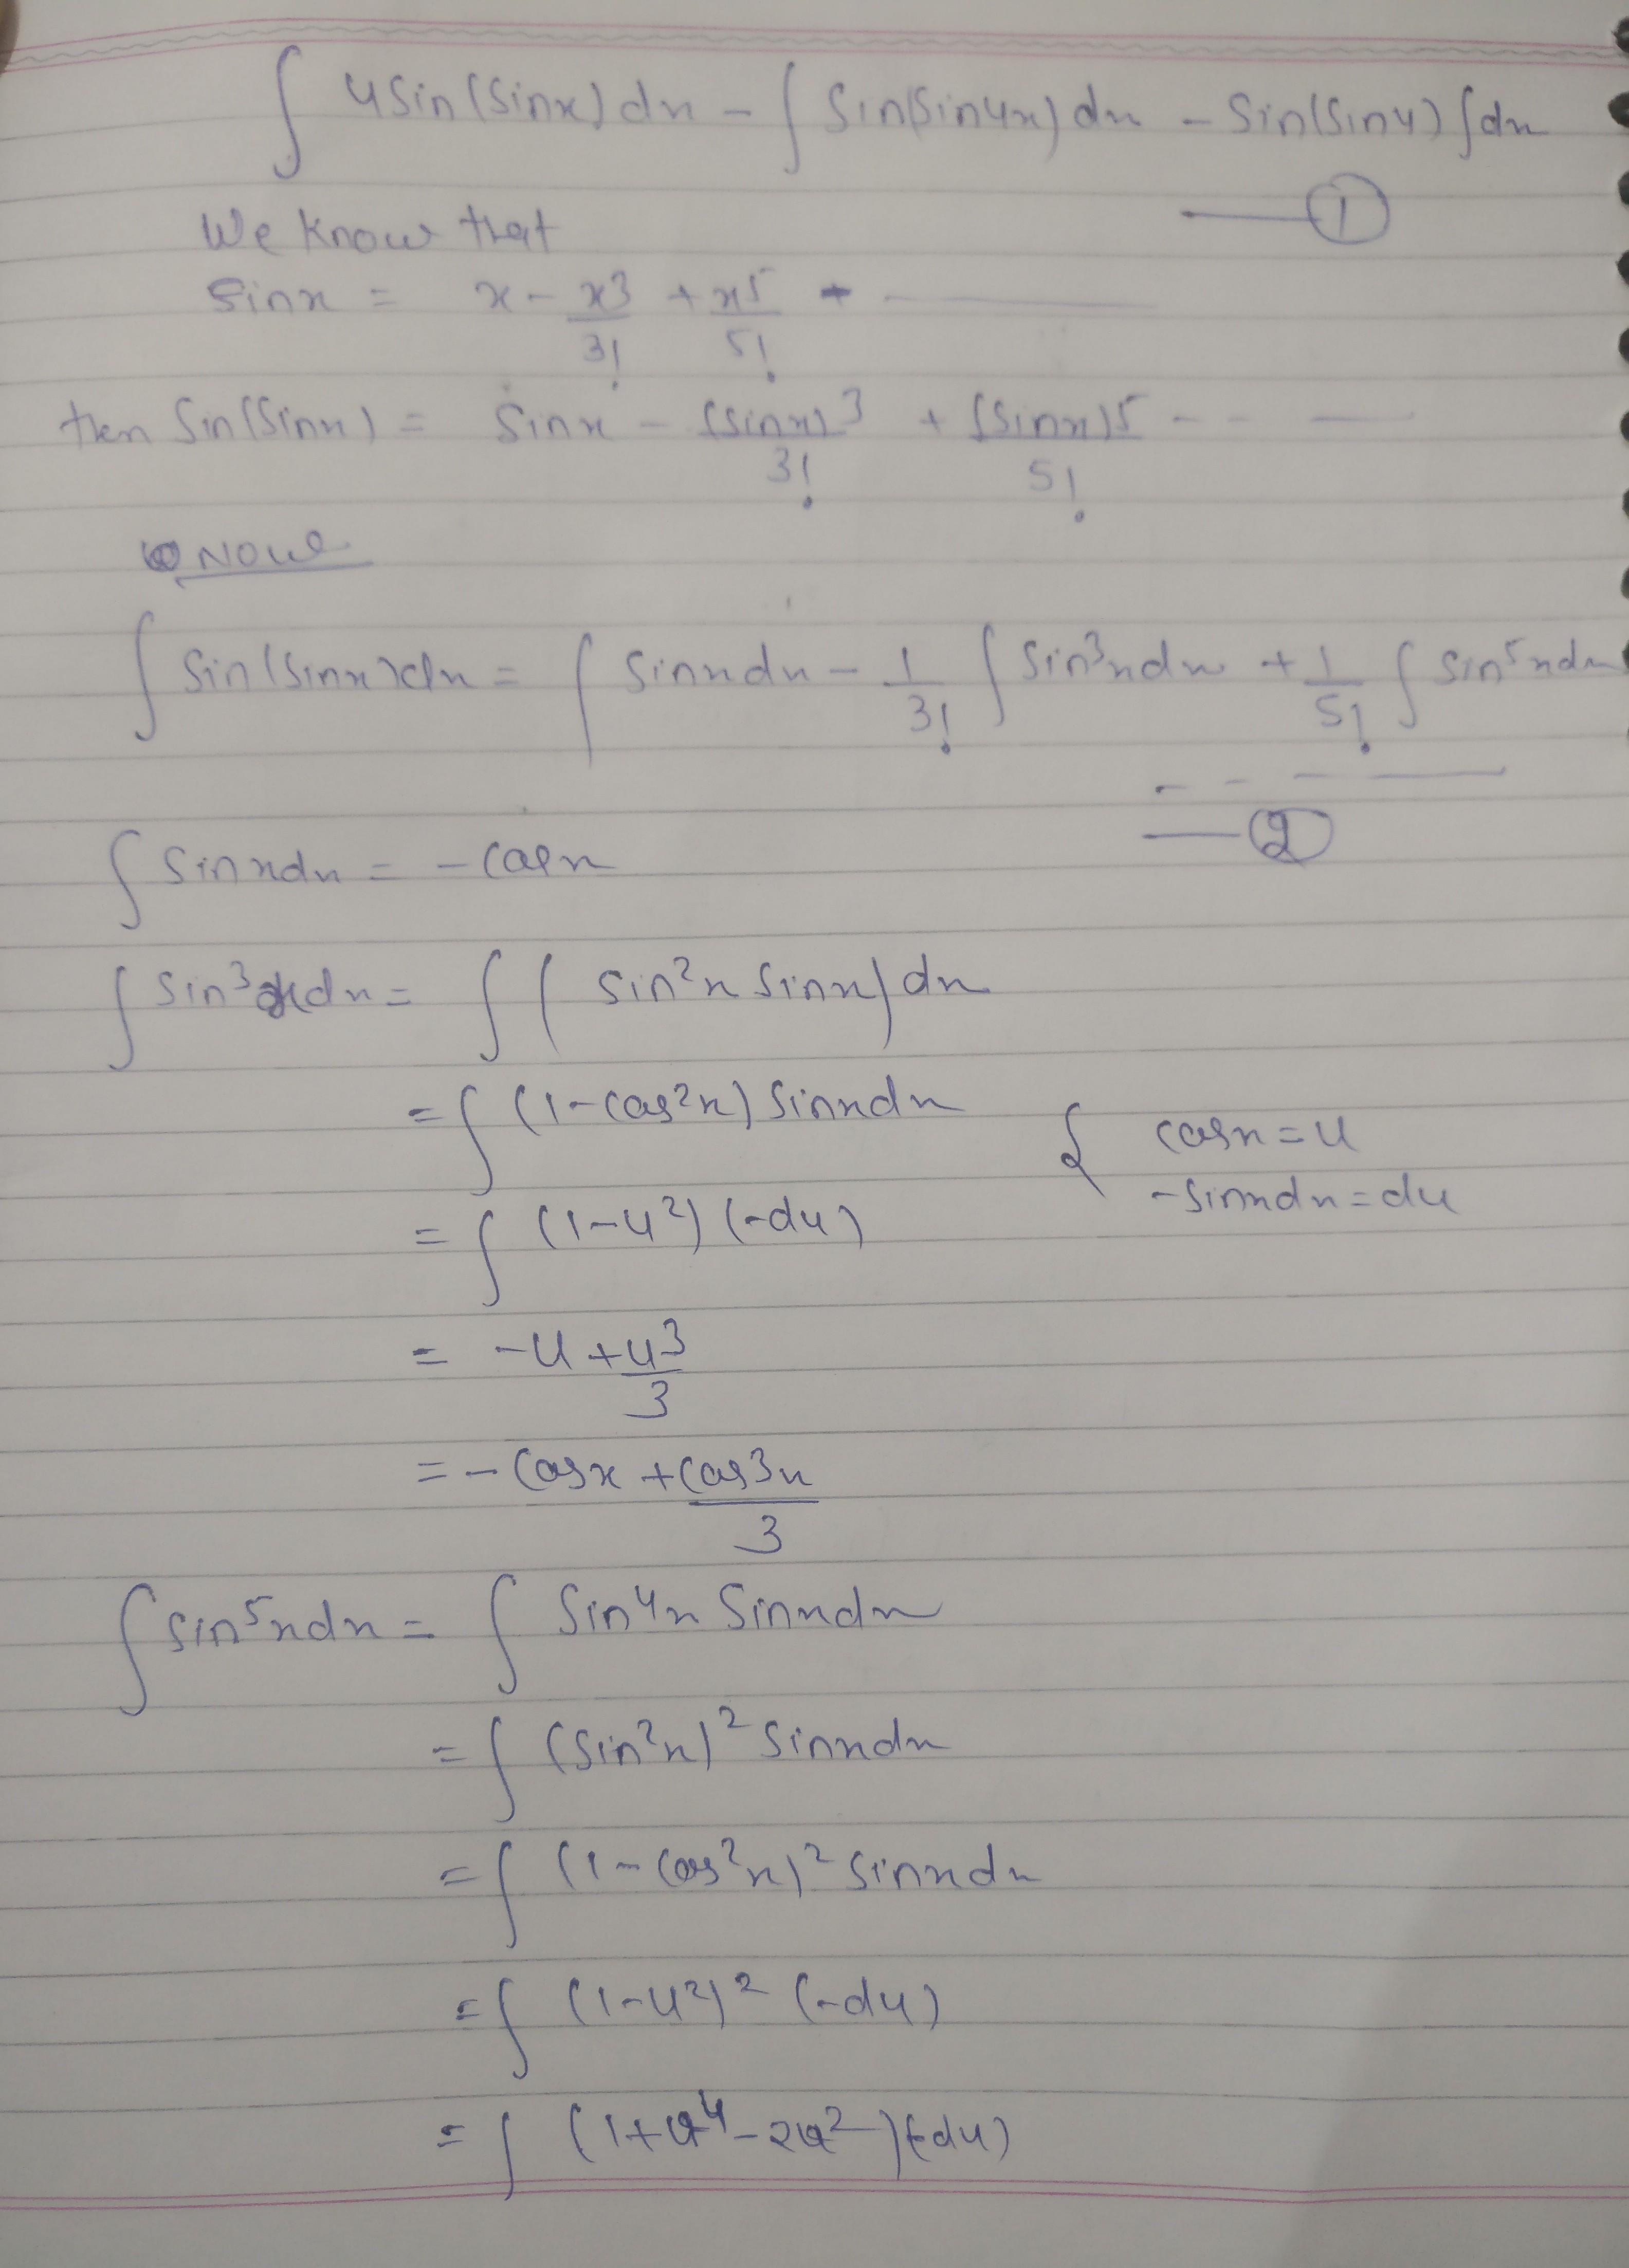 ∫ 4 Sin(Sinx) dx - ∫ Sin(Sin4x) dx - Sin(Sin4) ∫dx
— ①
We know that
Sinx = x - x3/3! + x5/5! - ———
then Sin(Sinx) = Sinx - (Sinx)3/3! + (Sinx)5/5! - - —
Now
∫ Sin(Sinx)dx = ∫ Sinxdx - 1/3! ∫ Sin³xdx + 1/5! ∫ Sin⁵xdx
- - — —
— ②
∫ Sinxdx = - Cosx
∫ Sin³xdx = ∫ ( Sin²x Sinx) dx
= ∫ (1-Cos²x) Sinxdx { cosx = u
-Sinxdx = du
= ∫ (1-u²) (-du)
= -u + u3/3
= - Cosx + Cos3x/3
∫ Sin⁵xdx = ∫ Sin4x Sinxdx
= ∫ (Sin²x)² Sinxdx
= ∫ (1-Cos²x)² Sinxdx
= ∫ (1-u²)² (-du)
= ∫ (1+u⁴-2u²)(-du)